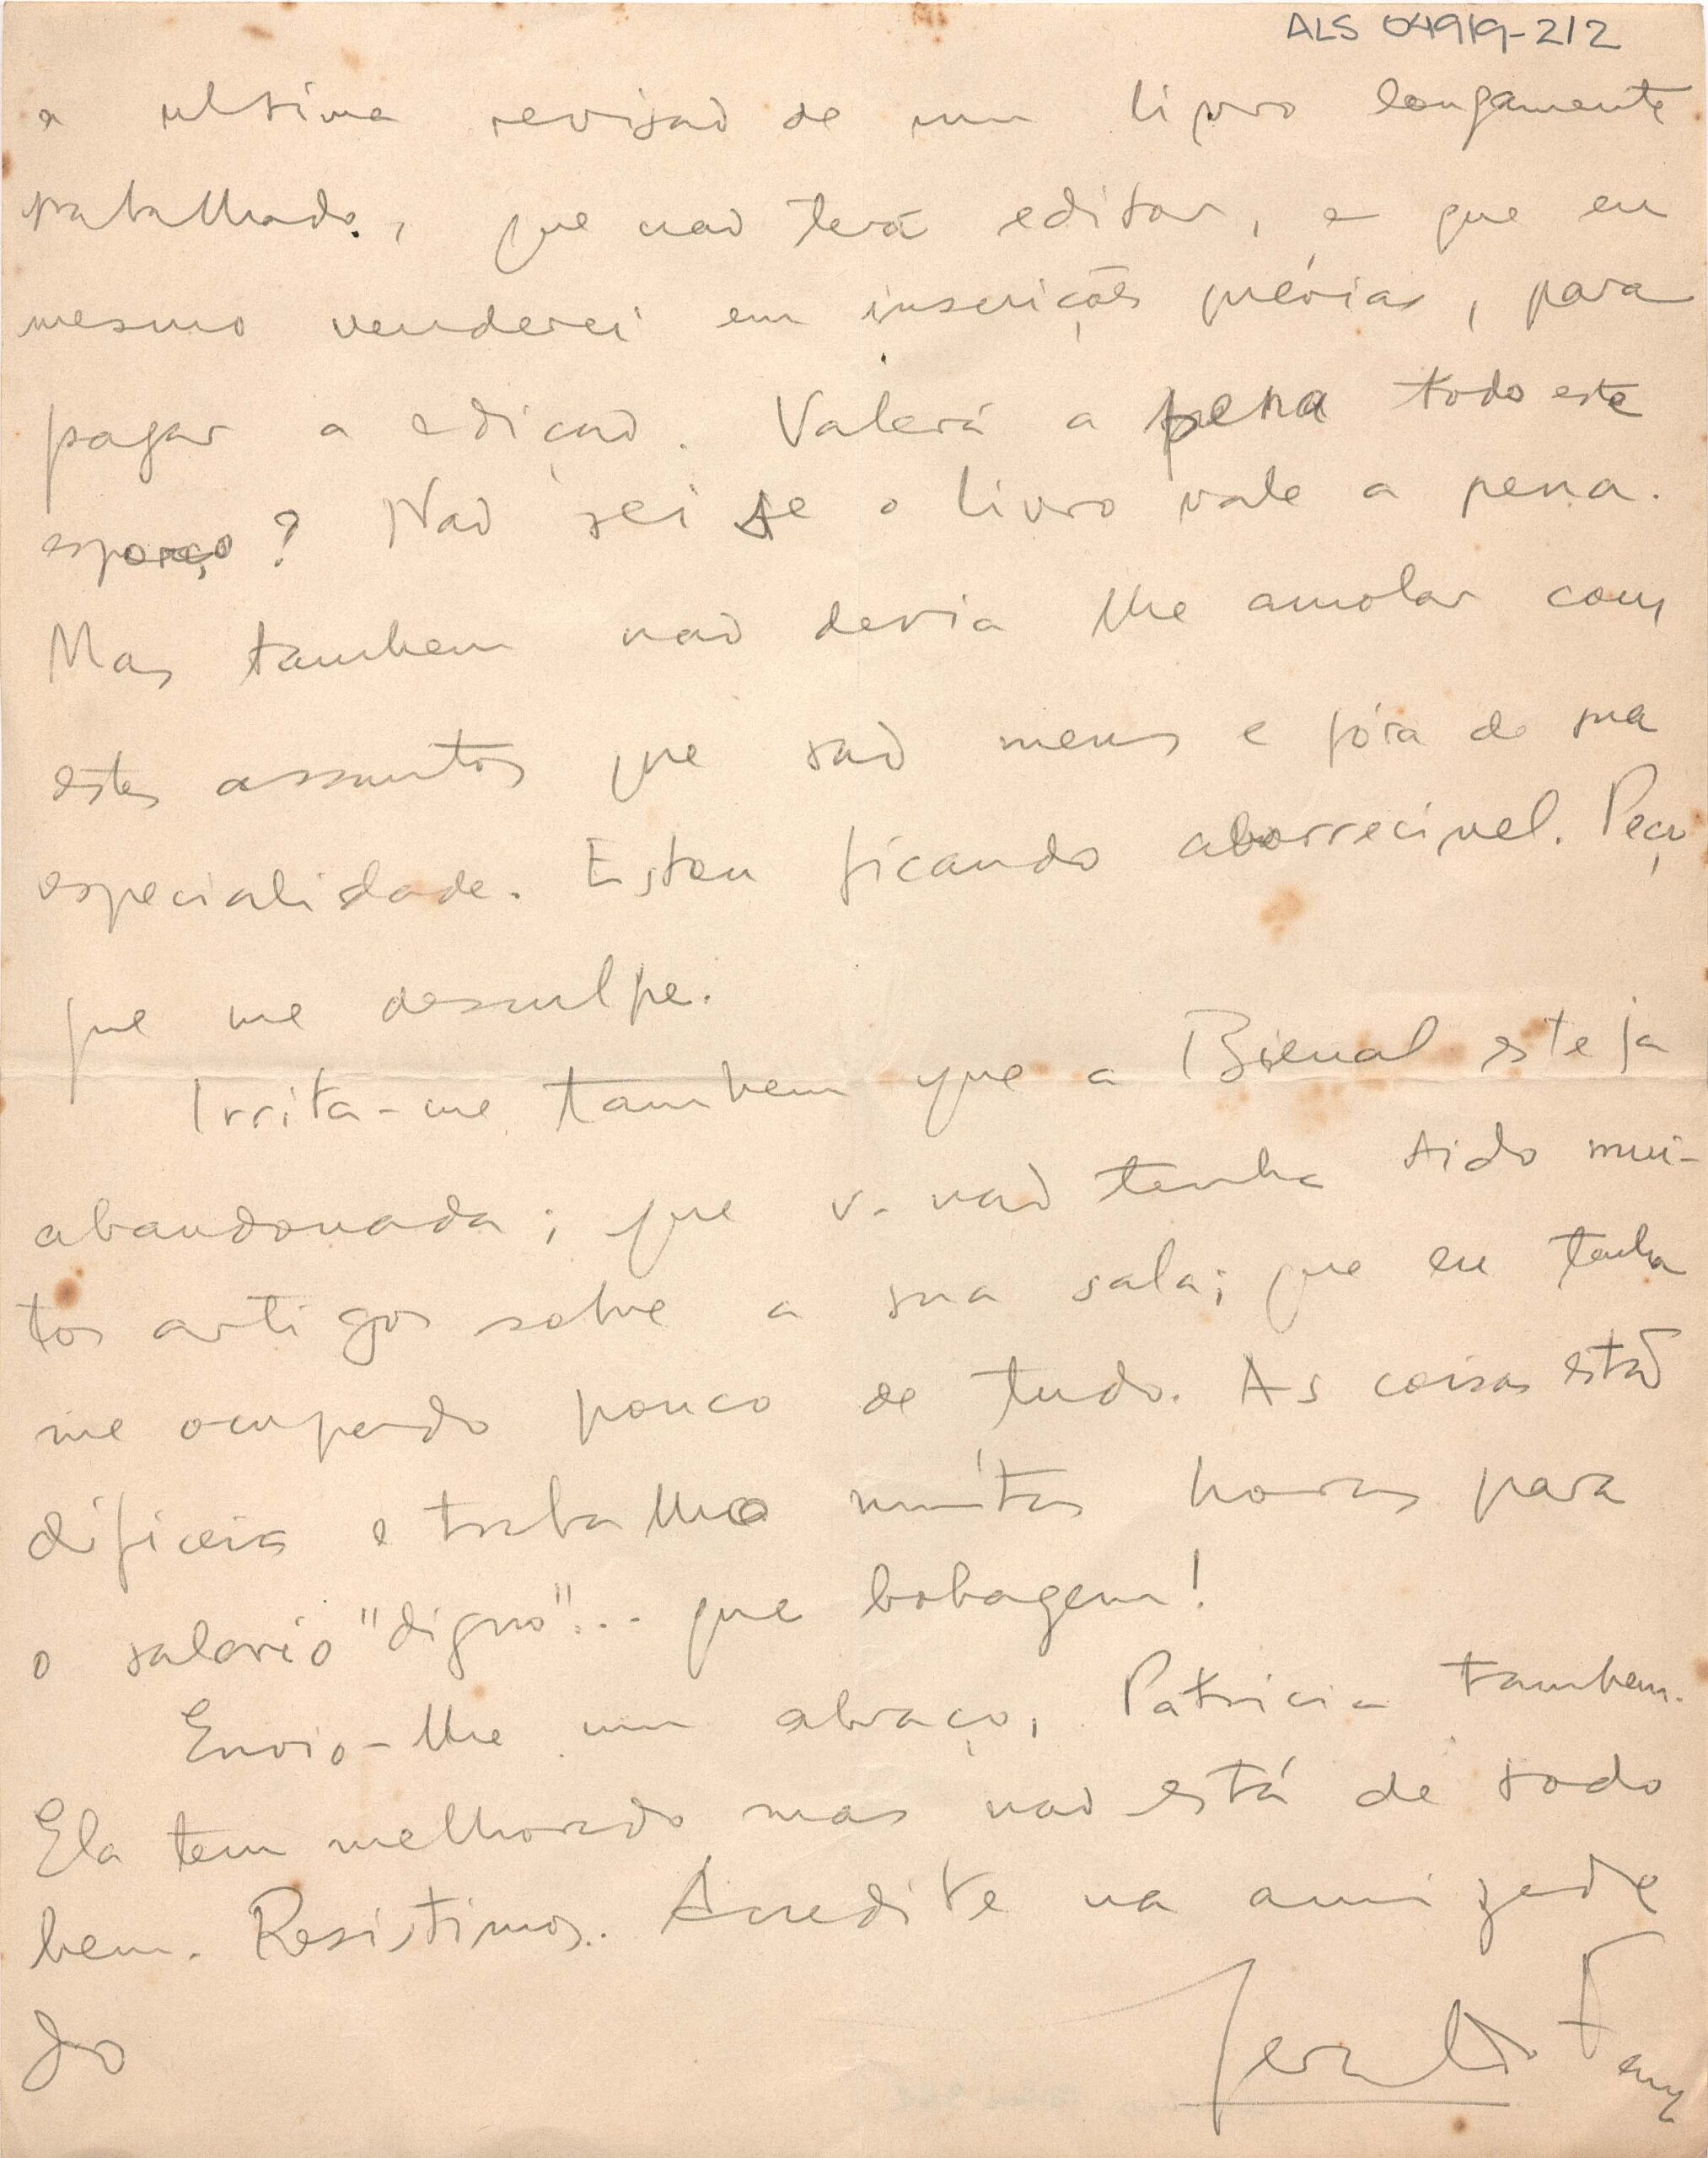 ALS 04919-2/2
a ultima revisaõ de um livro longamente
trabalhado, que naõ terá editor, e que eu
mesmo venderei em inscrições prévias, para
pagar a ediçaõ. Valerá a pena todo este
esforço? Naõ sei se o livro vale a pena.
Mas tambem naõ devia lhe amolar com
estes assuntos que saõ meus e fóra de sua
especialidade. Estou ficando aborrecivel. Peço
que me desculpe.
Irrita-me tambem que a Bienal esteja
abandonada; que v. naõ tenha tido mui-
tos artigos sobre a sua sala; que eu tenha
me ocupando pouco de tudo. As coisas estaõ
dificeis e trabalho muitas horas para
o salario "digno"... que bobagem!
Envio-lhe um abraço, Patricia tambem.
Ela tem melhorado mas naõ está de todo
bem. Resistimos. Acredite na amizade
do
Geraldo Ferraz